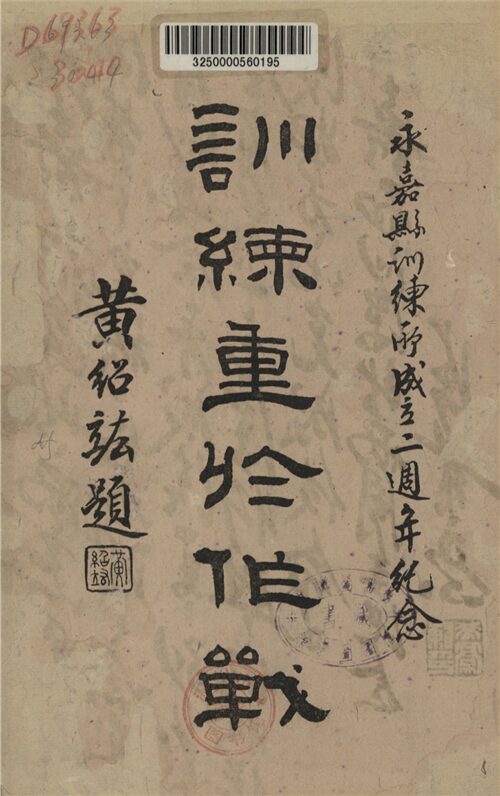 D69363
30414
3250000560195
永嘉縣訓練所成立二週年紀念
訓練重於作戰
黃紹竑題
黃紹竑